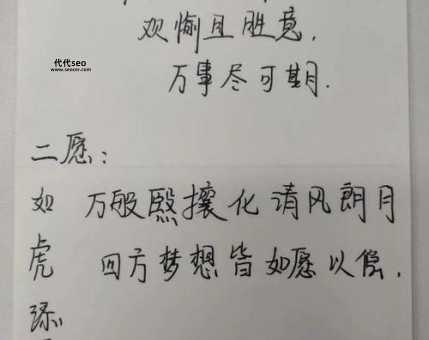 代代seo
www.seocer.com
欢愉且胜意,
万事尽可期.
二愿:
如虎添
万般熙攘化清风朗月
四方梦想皆如愿以偿.